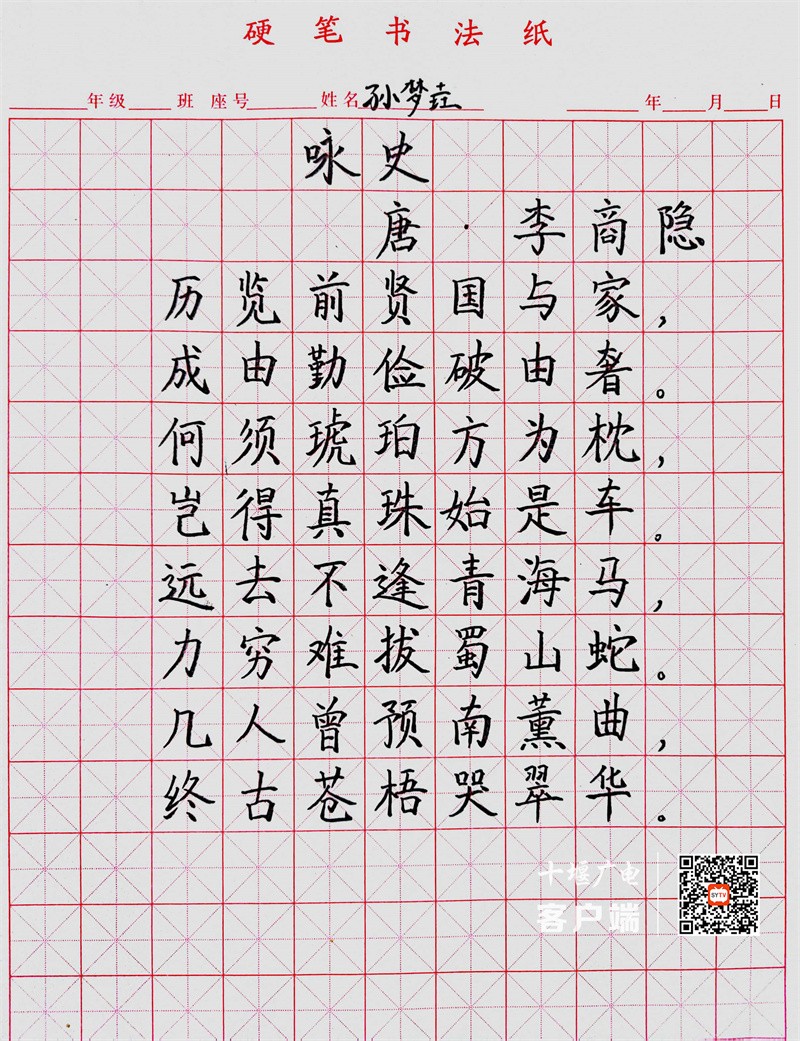 硬笔书法纸
年级 班 座号 姓名 孙梦垚 年 月 日
咏史
唐·李商隐
历览前贤国与家，
成由勤俭破由奢。
何须琥珀方为枕，
岂得真珠始是车。
远去不逢青海马，
力穷难拔蜀山蛇。
几人曾预南薰曲，
终古苍梧哭翠华。
十堰广电
客户端
SYTV